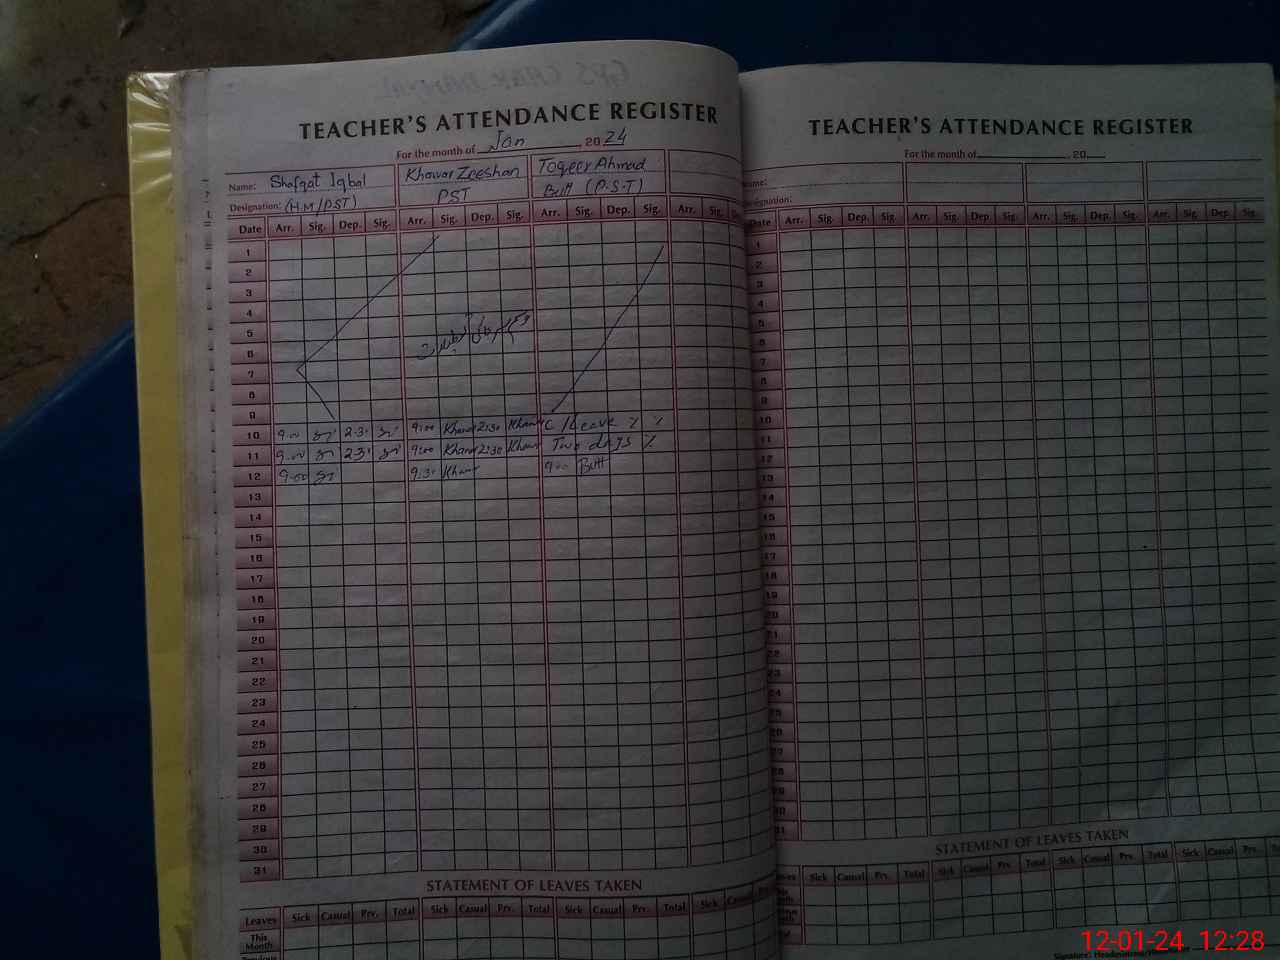 TEACHER'S ATTENDANCE REGISTER
For the month of Jan 2024
Name: Shafqat Iqbal Khawar Zeeshan Toqeer Ahmad
Designation: (H.M/PST) PST Butt (P.S.T)
Date Arr. Sig. Dep. Sig. Arr. Sig. Dep. Sig. Arr. Sig. Dep. Sig. Arr. Sig. Dep.
1
2
3
4
5
6
7
8
9
10 9:00 2:30 9:00 Khawar 2:30 Khawar C/Leave % %
11 9:00 2:30 9:00 Khawar 2:30 Khawar Two days %
12 9:00 9:30 Khawar 9:00 Butt
13
14
15
16
17
18
19
20
21
22
23
24
25
26
27
28
29
30
31
STATEMENT OF LEAVES TAKEN
Leaves Sick Casual Prv. Total Sick Casual Prv. Total Sick Casual Prv. Total Sick
This Month
TEACHER'S ATTENDANCE REGISTER
For the month of 20
Name:
Designation:
Date Arr. Sig. Dep. Sig. Arr. Sig. Dep. Sig. Arr. Sig. Dep. Sig. Arr. Sig. Dep. Sig.
1
2
3
4
5
6
7
8
9
10
11
12
13
14
15
16
17
18
19
20
21
22
23
24
25
26
27
28
29
30
31
STATEMENT OF LEAVES TAKEN
Sick Casual Prv. Total Sick Casual Prv. Total Sick Casual Prv. Total Sick Casual Prv.
12-01-24 12:28